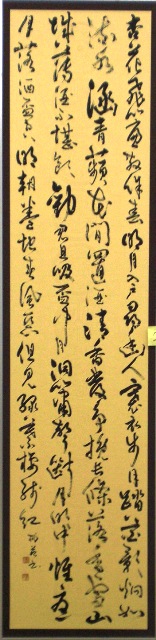 杏花飛簾散餘春明月入户尋幽人褰衣步月踏花影炯如
流水涵青蘋花間置酒清香發爭挽長條落香雪山
城薄酒不堪飲勸君且吸盃中月洞簫聲斷月明中惟憂
月落酒盃空明朝卷地春風惡但見綠葉棲殘紅